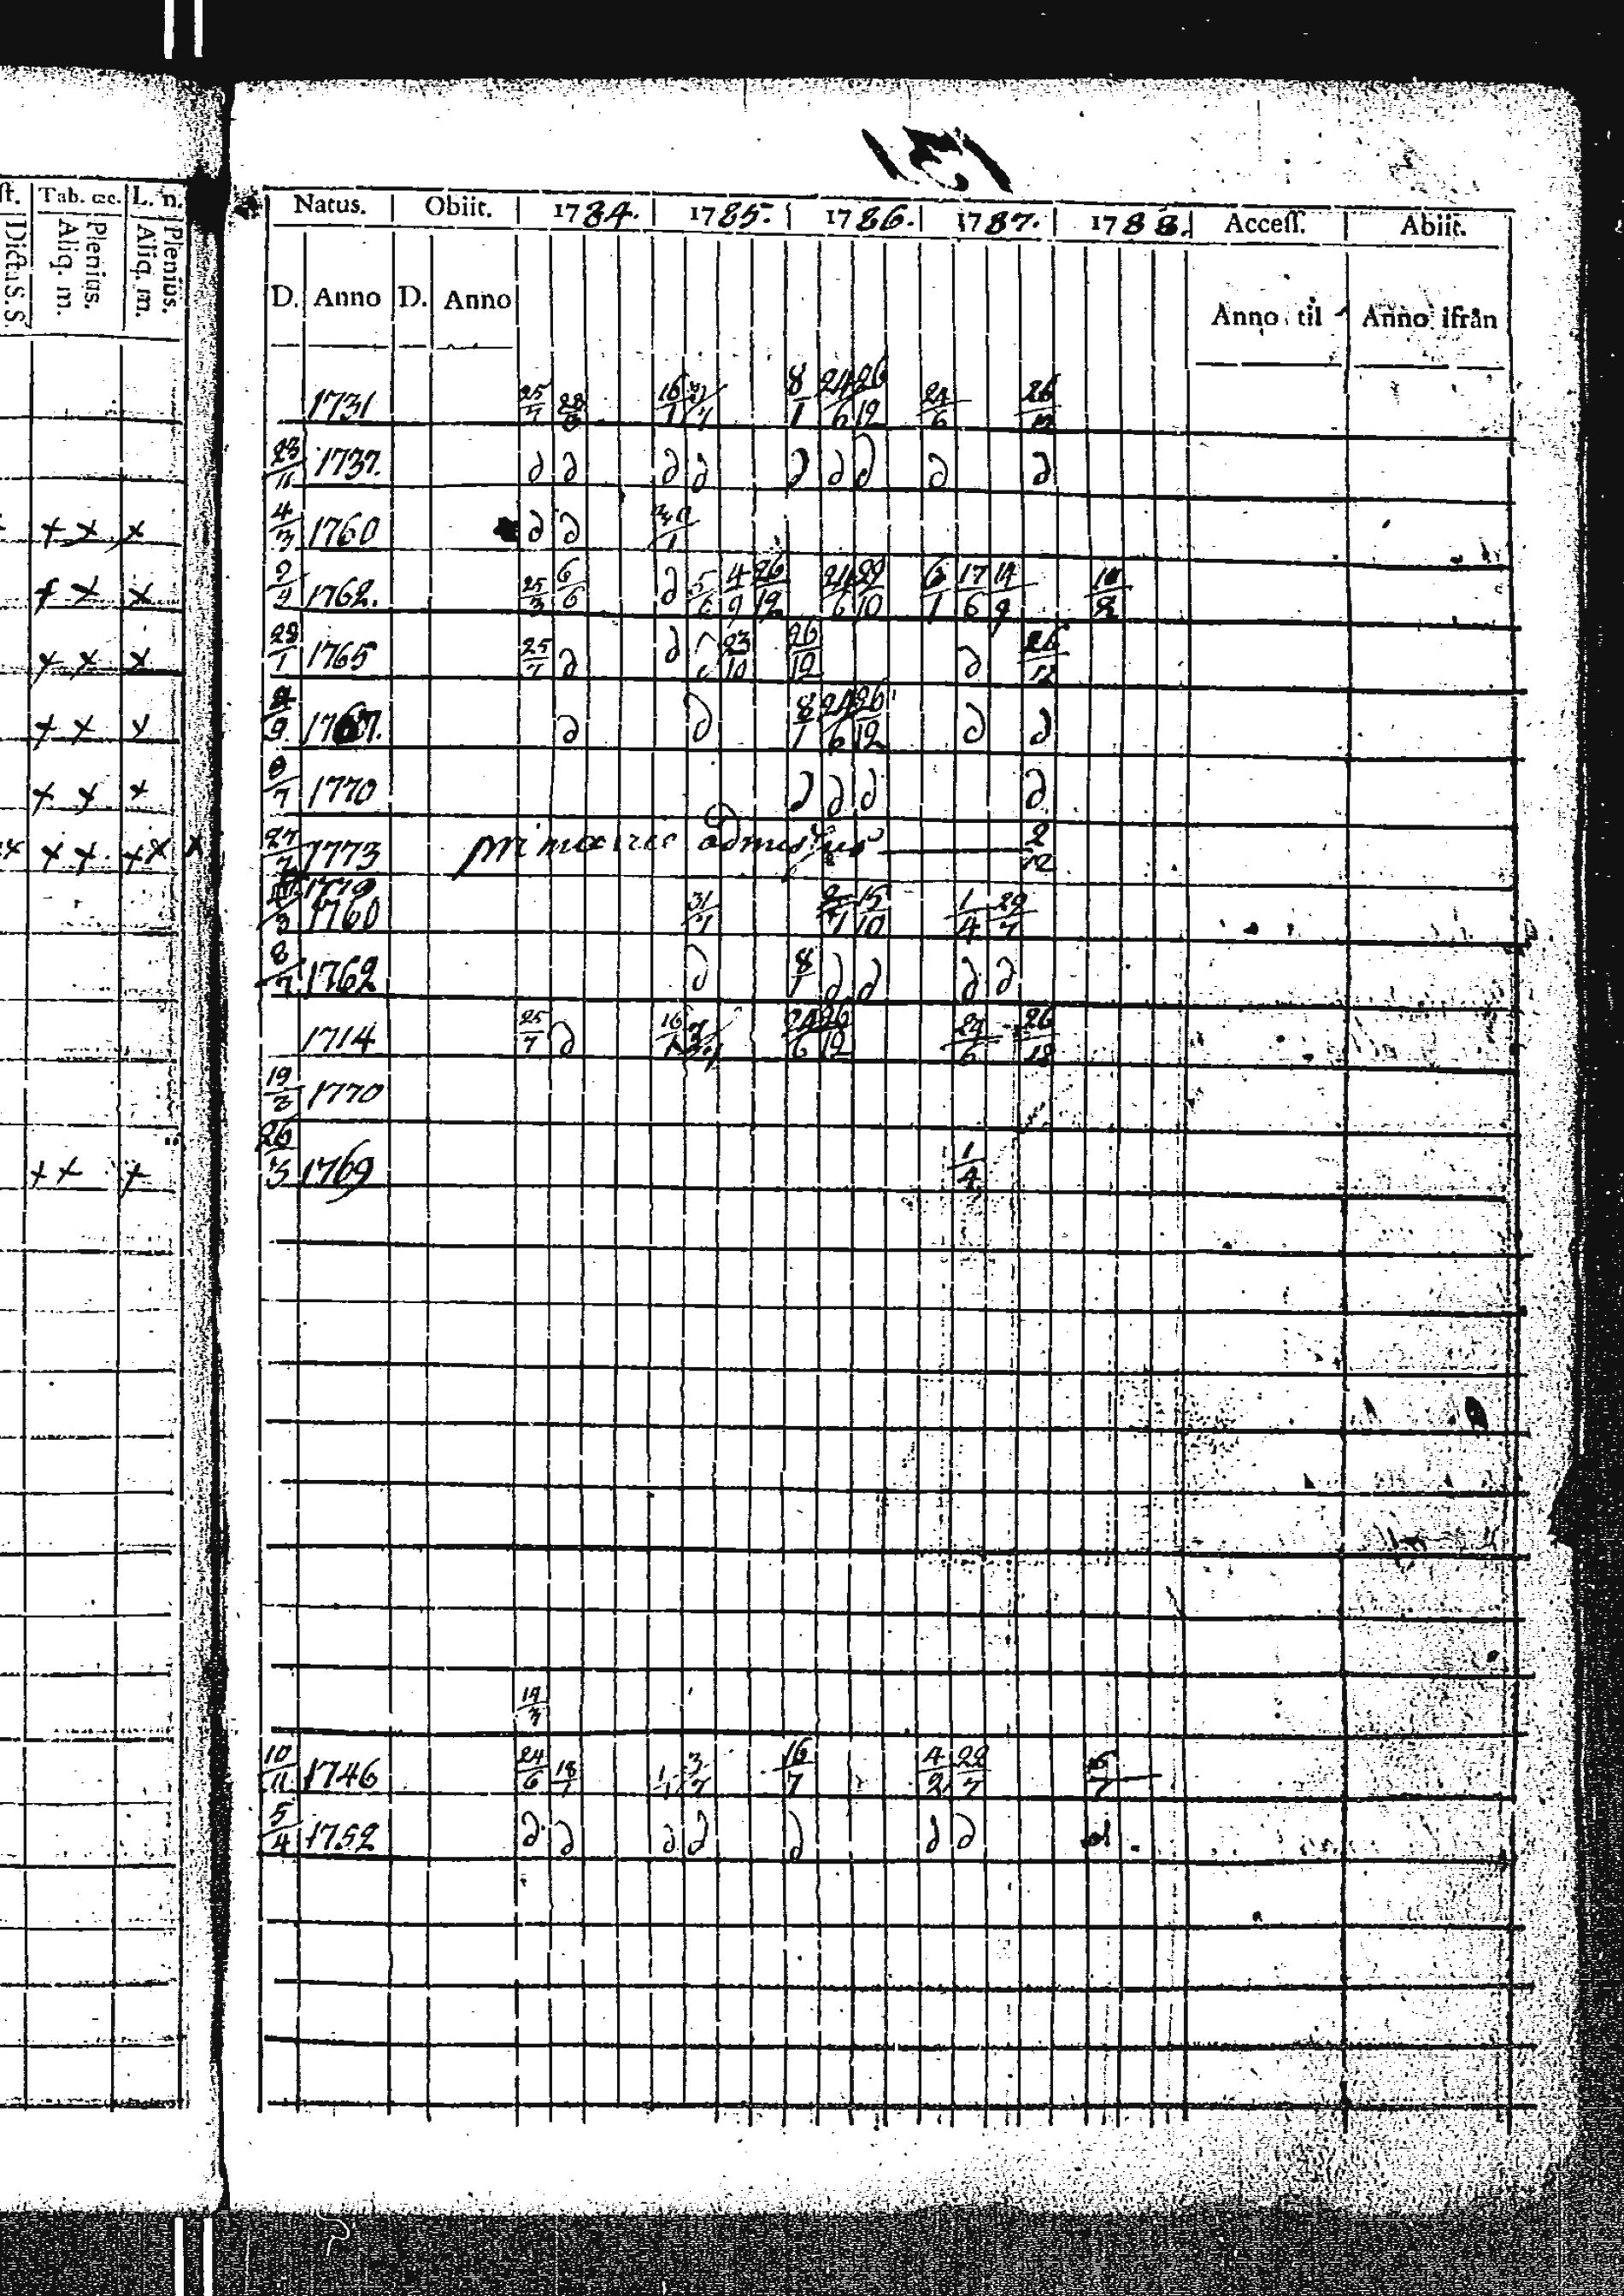 151
st. Tab. œc. L. n. Natus. Obiit. 1784. 1785. 1786. 1787. 1788. Access. Abiit.
Dictu S.S. Aliq. m. Plenius. Aliq. m. Plenius. D. Anno D. Anno Anno til Anno ifrån
1731 25/7 16/1 8/1 24/6 26/12 24/6 26/12
23/11 1737. ∂ ∂ ∂ ∂ ∂ ∂ ∂ ∂ ∂
+ x x 4/3 1760 ∂ ∂
+ x x 1762. 25/3 6/6 ∂ 5/6 4/9 26/12 24/6 29/10 6/1 17/6 14/9
x x x 28/1 1765 25/7 ∂ ∂ 23/10 26/12 ∂ 26/12
x x x 1767. ∂ ∂ 8/1 24/6 26/12 ∂ ∂
x x x 8/7 1770 ∂ ∂ ∂ ∂
x x x x x x 27/7 1773 2/12
1779
1760 31/7 15/10 1/4 29/7
8/7 1762 ∂ 8/1 ∂ ∂ ∂ ∂
1714 25/7 ∂ 16/1 24/6 26/12 24/6 26/12
19/2 1770
x x x 26/3 1769 1/4
19/3
10/11 1746 24/6 18/7 1/1 3/7 16/7 4/2 22/7
5/4 1752 ∂ ∂ ∂ ∂ ∂ ∂ ∂